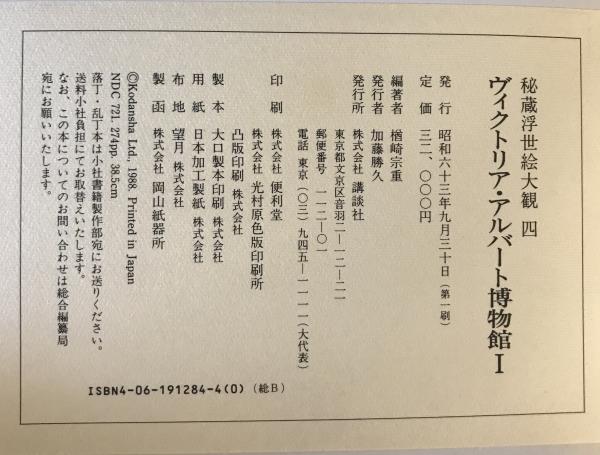 秘蔵浮世絵大観 四
ヴィクトリア・アルバート博物館 I
発行 昭和六十三年九月三十日(第一刷)
定価 三二、〇〇〇円
編著者 楢崎宗重
発行者 加藤勝久
発行所 株式会社 講談社
東京都文京区音羽二―一二―二一
郵便番号 一一二―〇一
電話 東京(〇三)九四五―一一一一(大代表)
印刷 株式会社 便利堂
株式会社 光村原色版印刷所
凸版印刷 株式会社
製本 大口製本印刷 株式会社
用紙 日本加工製紙 株式会社
布地 望月 株式会社
製函 株式会社 岡山紙器所
©Kodansha Ltd., 1988. Printed in Japan
NDC 721. 274pp. 38.5cm
落丁・乱丁本は小社書籍製作部宛にお送りください。
送料小社負担にてお取替えいたします。
なお、この本についてのお問い合わせは総合編纂局
宛にお願いいたします。
ISBN4-06-191284-4(0)(総B)